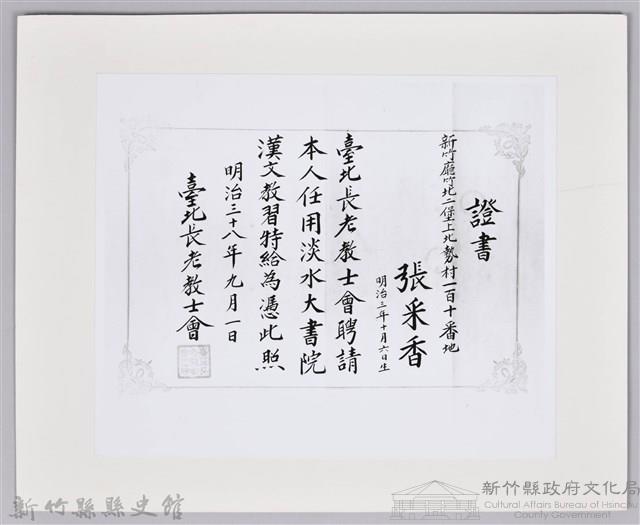 證書
新竹廳竹北二堡上北勢村一百十番地
張采香
明治三年十月六日生
臺北長老教士會聘請
本人任用淡水大書院
漢文教習特給為憑此照
明治三十八年九月一日
臺北長老教士會
新竹縣縣史館
新竹縣政府文化局
Cultural Affairs Bureau of Hsinchu
County Government